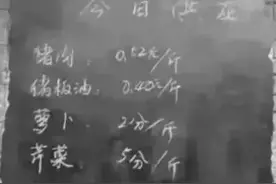 今日供应
猪肉: 0.52元/斤
猪板油: 0.40元/斤
萝卜: 2分/斤
芹菜: 5分/斤